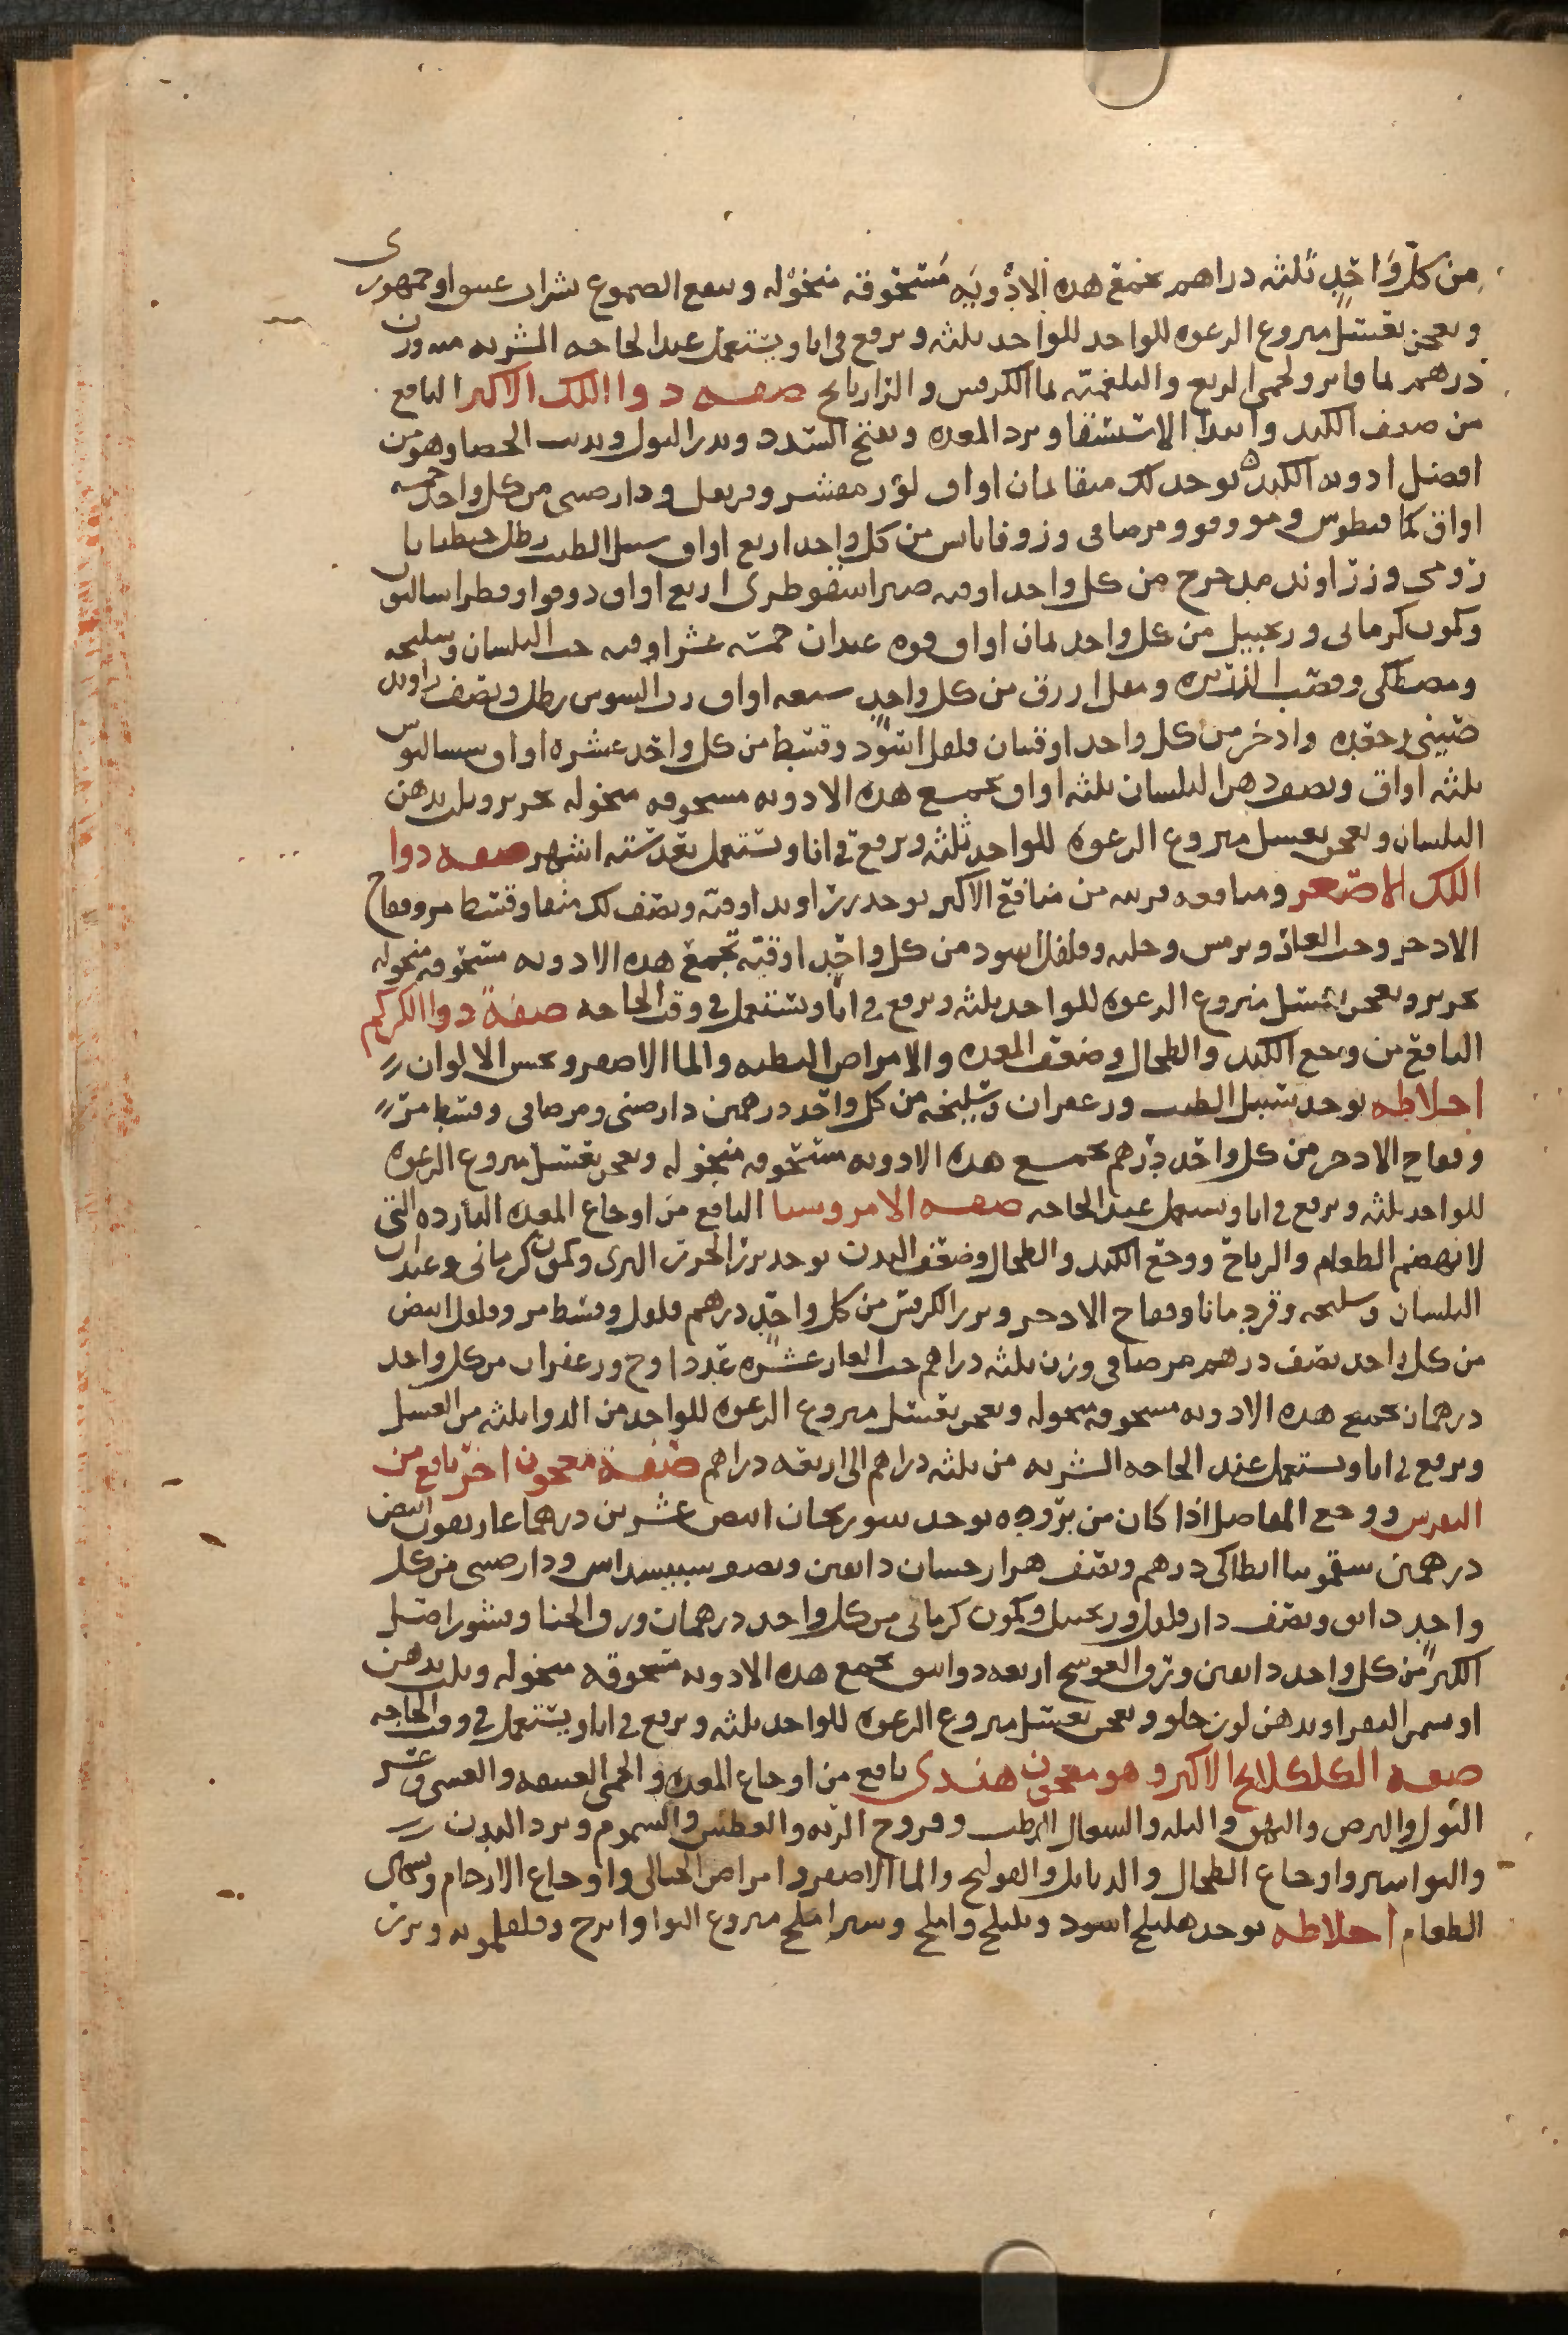 من كل واحد ثلثه دراهم تجمع هده الادويه مسحوقه منخوله وينقع الصموغ بشراب عتيق او جمهورى
ويعجن بعسل منزوع الرغوه للواحد للواحد ثلثه ويرفع فى انا ويستعمل عند الحاجه الشربه منه وزن
درهم بما فاتر ولحمى الربع والبلغميه بما الكرفس والرازيانج صفه دوا اللك الاكبر النافع
من ضعف الكبد وابتدا الاستسقا وبرد المعده ويفتح السدد ويدر البول ويديب الحصا وهو من
افضل ادويه الكبد يوخد لك منقا ثمان اواق لوز مقشر وقرنفل ودارصينى من كل واحد خمسه
اواق كمافيطوس ومو وفو ومرصافى وزوفا يابس من كل واحد اربع اواق سنبل الطيب رطل جنطيانا
رومى وزراوند مدحرج من كل واحد اوقيه صبر اسقوطرى اربع اواق دوقوا وفطراساليون
وكمون كرمانى وزنجبيل من كل واحد ثمان اواق فوه عيدان خمسه عشر اوقيه حب البلسان وسليخه
ومصطكى وقصب الذريره ومقل ازرق من كل واحد سبعه اواق رب السوس رطل ونصف راوند
صينى وجعده واذخر من كل واحد اوقيتان فلفل اسود وقسط من كل واحد عشره اواق سساليوس
ثلثه اواق ونصف دهن البلسان ثلثه اواق تجمع هده الادويه مسحوقه منخوله بحرير ويلت بدهن
البلسان ويعجن بعسل منزوع الرغوه للواحد ثلثه ويرفع فى انا ويستعمل بعد سته اشهر صفه دوا
اللك الاصغر ومنافعه قريبه من منافع الاكبر يوخد زراوند اوقيه ونصف لك منقا وقسط مر وفقاح
الادخر وحب الغار وترمس وحلبه وفلفل اسود من كل واحد اوقيه تجمع هده الادويه مسحوقه منخوله
بحرير ويعجن بعسل منزوع الرغوه للواحد ثلثه ويرفع فى انا ويستعمل فى وقت الحاجه صفة دوا الكركم
النافع من وجع الكبد والطحال وضعف المعده والامراض البطيه والما الاصفر ويحسن الالوان
اخلاطه يوخد سنبل الطيب وزعفران وسليخه من كل واحد درهمين دارصينى ومرصافى وقسط مر
وفقاح الادخر من كل واحد درهم تجمع هده الادويه مسحوقه منخوله ويعجن بعسل منزوع الرغوه
للواحد ثلثه ويرفع فى انا ويستعمل عند الحاجه صفه الامروسيا النافع من اوجاع المعده البارده التى
لا تهضم الطعام والرياح ووجع الكبد والطحال وضعف البدن يوخد بزر الجزر البرى وكمون كرمانى وعيدان
البلسان وسليخه وقردمانا وفقاح الادخر وبزر الكرفس من كل واحد درهم فلفل وقسط مر وفلفل ابيض
من كل واحد نصف درهم مرصافى وزن ثلثه دراهم حب الغار عشره عدد اوج وزعفران من كل واحد
درهمان تجمع هده الادويه مسحوقه منخوله ويعجن بعسل منزوع الرغوه للواحد من الدوا ثلثه من العسل
ويرفع فى انا ويستعمل عند الحاجه الشربه من ثلثه دراهم الى اربعه دراهم صفة معجون اخر نافع من
النقرس ووجع المفاصل اذا كان من بروده يوخد سورنجان ابيض عشرين درهما غاريقون ابيض
درهمين سقمونيا انطاكى درهم ونصف هزارجسان دانقين ونصف ودارصينى من كل
واحد دانق ونصف دارفلفل وزنجبيل وكمون كرمانى من كل واحد درهمان ورق الحنا وقشور اصل
الكبر من كل واحد دانقين وورق العوسج اربعه دوانيق تجمع هده الادويه مسحوقه منخوله ويلت بدهن
او سمن البقر او بدهن لوز حلو ويعجن بعسل منزوع الرغوه للواحد ثلثه ويرفع فى انا ويستعمل فى وقت الحاجه
صفه الكلكلانج الاكبر وهو معجون هندى نافع من اوجاع المعده والحمى العتيقه والغشى وعسر
البول والبرص والبهق والبله والسعال الرطب وقروح الريه والعطش والسموم وبرد البدن
والبواسير واوجاع الطحال والدبابل والقولنج والما الاصفر وامراض الحبالى واوجاع الارحام
الطعام اخلاطه يوخد هليلج اسود وبليلج واملج وشير املج منزوع النوا وابرنج وفلفلمويه وبزر